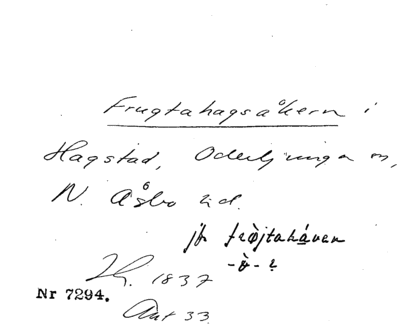 Frugtahagsåkern i
Hagstad, Oderljunga sn,
N. Åsbo hd.
jfr frøjtaháven
Lh. 1837
Nr 7294.
Aut 33